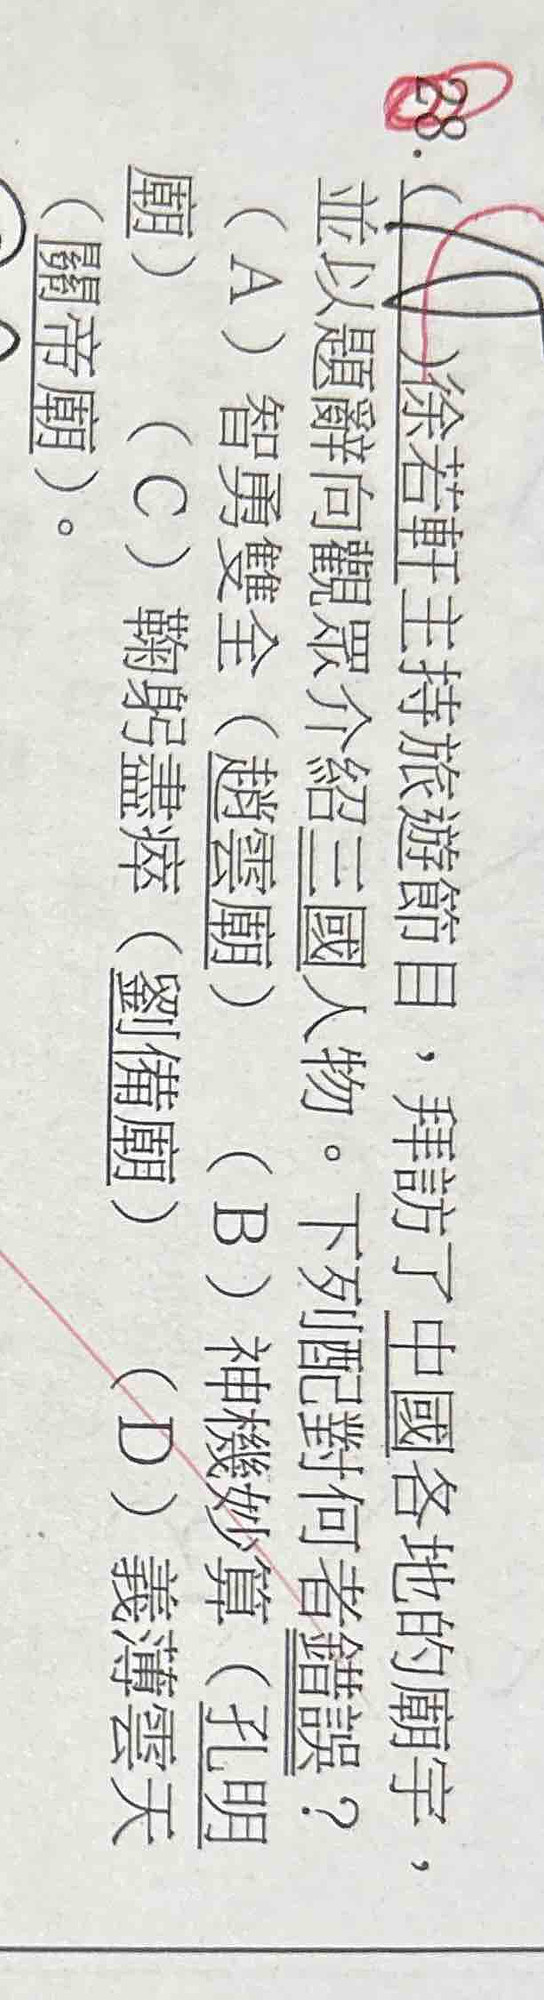 28.( )徐若軒主持旅遊節目，拜訪了中國各地的廟宇，
並以題辭向觀眾介紹三國人物。下列配對何者錯誤？
（A）智勇雙全（趙雲廟）（B）神機妙算（孔明
廟）（C）鞠躬盡瘁（劉備廟）（D）義薄雲天
（關帝廟）。